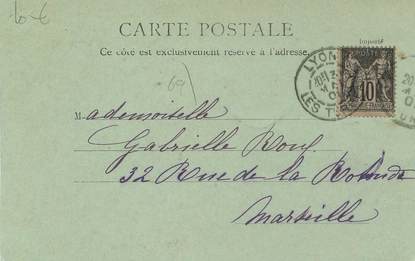 10-€
CARTE POSTALE
Ce côté est exclusivement réservé à l'adresse.
LYON
LES T
10
69)
Mademoiselle
Gabrielle Roux
32 Rue de la Rotonde
Marseille